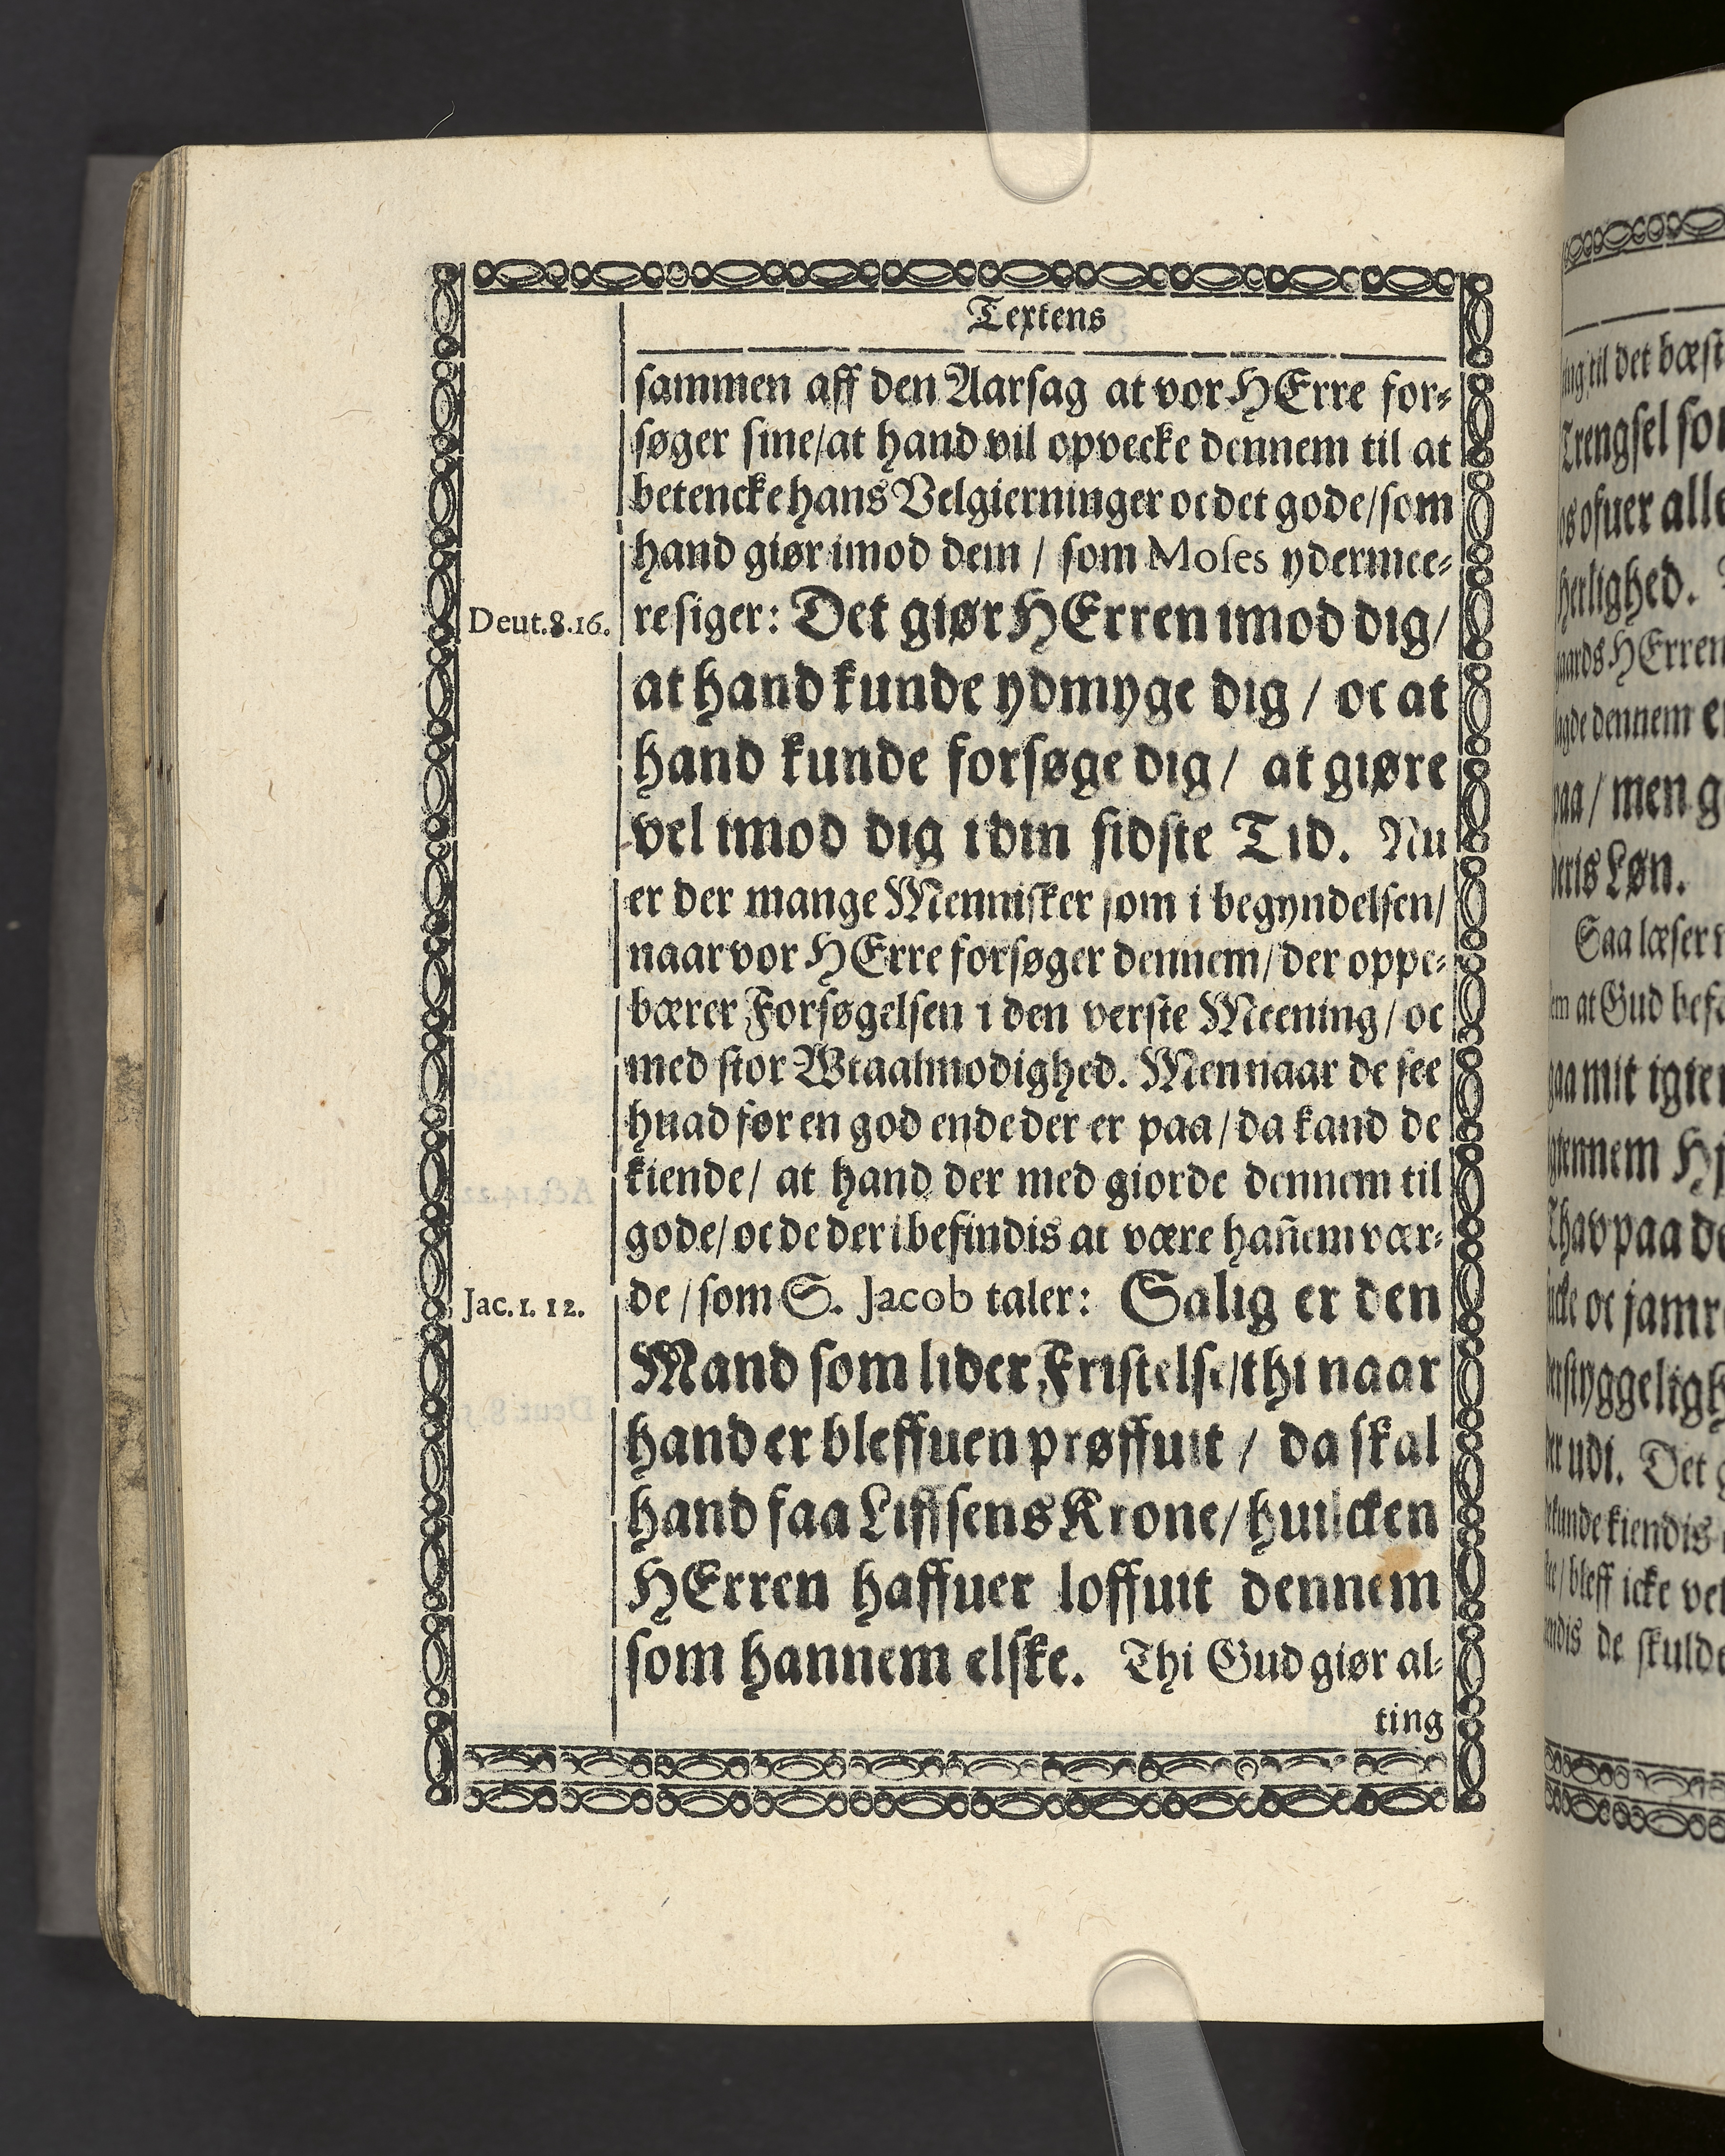 Textens
sammen aff den Aarsag at vor HErre for⸗
søger sine/at hand vil opvecke dennem til at
betencke hans Velgierninger oc det gode/som
hand giør imod dem / som Moses ydermee⸗
re siger: Det giør HErren imod dig/
Deut.8.16.
at hand kunde ydmyge dig / oc at
hand kunde forsøge dig / at giøre
vel imod dig i din sidste Tid. Nu
er der mange Mennisker som i begyndelsen/
naar vor HErre forsøger dennem/der oppe⸗
bærer Forsøgelsen i den verste Meening/oc
med stor Wtaalmodighed. Men naar de see
huad før en god ende der er paa/da kand de
kiende/ at hand der med giorde dennem til
gode/oc de der i befindis at være hañem vær⸗
de/som S. Jacob taler: Salig er den
Jac.1. 12.
Mand som lider Fristelse/thi naar
hand er bleffuen prøffuit / da skal
hand faa Liffsens Krone/huilcken
HErren haffuer loffuit dennem
som hannem elske. Thi Gud giør al⸗
ting
til det bæst
Trengsel
ofuer alle
HErren
dennem
paa/ men
Løn.
Saa læser
at Gud
mit
paa
oc jamr
udi. Det
kiendis
bleff icke
de skulde